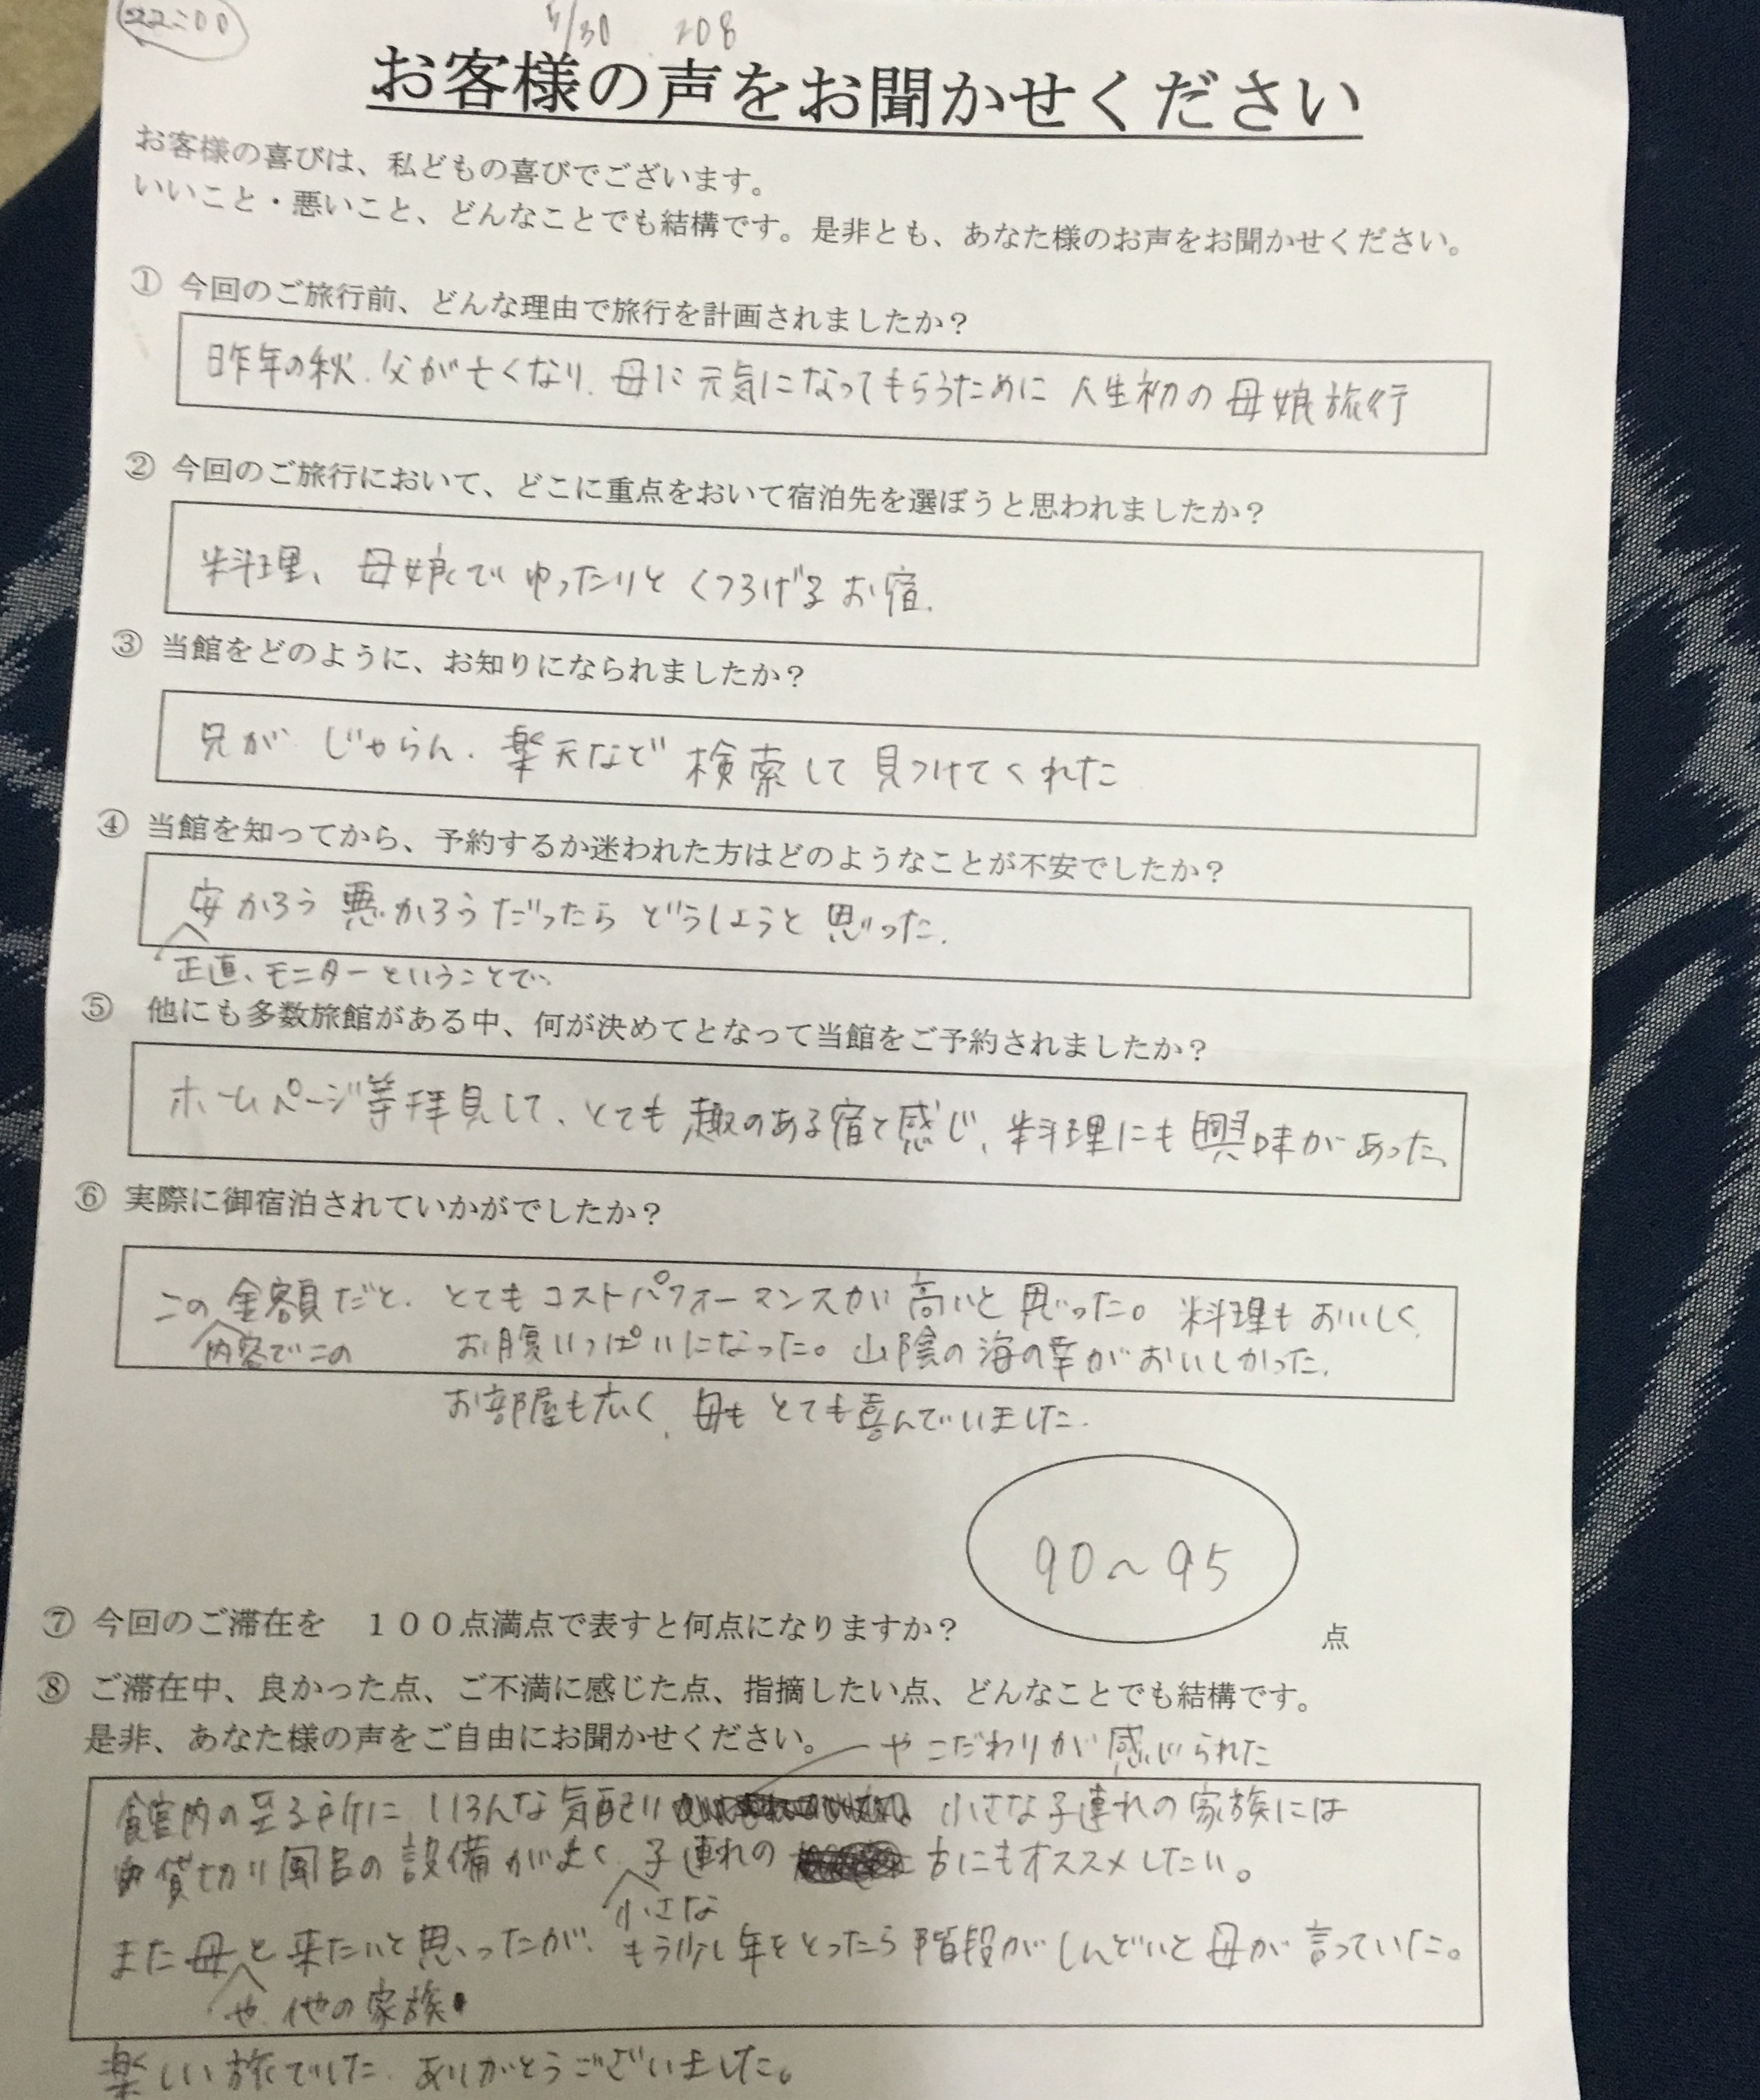 22:00
5/30 208
お客様の声をお聞かせください
お客様の喜びは、私どもの喜びでございます。
いいこと・悪いこと、どんなことでも結構です。是非とも、あなた様のお声をお聞かせください。
① 今回のご旅行前、どんな理由で旅行を計画されましたか?
昨年の秋、父が亡くなり、母に元気になってもらうために 人生初の母娘旅行
② 今回のご旅行において、どこに重点をおいて宿泊先を選ぼうと思われましたか?
料理、母娘でゆったりとくつろげるお宿。
③ 当館をどのように、お知りになられましたか?
兄が じゃらん、楽天など 検索して 見つけてくれた
④ 当館を知ってから、予約するか迷われた方はどのようなことが不安でしたか?
安かろう悪かろうだったら どうしようと思った。
正直、モニターということで、
⑤ 他にも多数旅館がある中、何が決めてとなって当館をご予約されましたか?
ホームページ等拝見して、とても趣のある宿と感じ、料理にも興味があった。
⑥ 実際に御宿泊されていかがでしたか?
この金額だと、とてもコストパフォーマンスが高いと思った。料理もおいしく、
内容でこの
お腹いっぱいになった。山陰の海の幸がおいしかった。
お部屋も広く、母もとても喜んでいました。
90〜95
⑦ 今回のご滞在を 100点満点で表すと何点になりますか?
点
⑧ ご滞在中、良かった点、ご不満に感じた点、指摘したい点、どんなことでも結構です。
是非、あなた様の声をご自由にお聞かせください。
やこだわりが感じられた
館内の至る所に いろんな気配り 小さな子連れの家族には
貸切り風呂の設備が 子連れの 方にもオススメしたい。
小さな
また母と来たいと思ったが、もう少し年をとったら階段がしんどいと母が言っていた。
や、他の家族
楽しい旅でした。ありがとうございました。